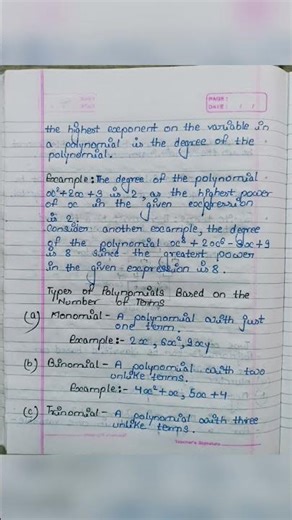 PAGE :
DATE : / /
the highest exponent on the variable in
a polynomial is the degree of the
polynomial.
Example:- The degree of the polynomial
x²+2x+3 is 2, as the highest power
of x in the given expression
is 2.
Consider another example, the degree
of the polynomial x⁸ + 2x⁶ - 3x + 9
is 8 since the greatest power
in the given expression is 8.
Types of Polynomials Based on the
Number of Terms
(a) Monomial - A polynomial with just
one term.
Example:- 2x, 6x², 9xy
(b) Binomial - A polynomial with two
unlike terms.
Example:- 4x²+x, 5x+4
(c) Trinomial - A polynomial with three
unlike terms.
Teacher's Signature